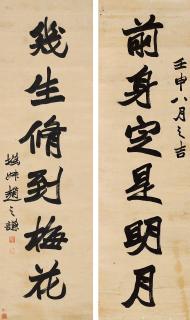 前身定是明月
壬申八月之吉
幾生脩到梅花
撝叔趙之謙